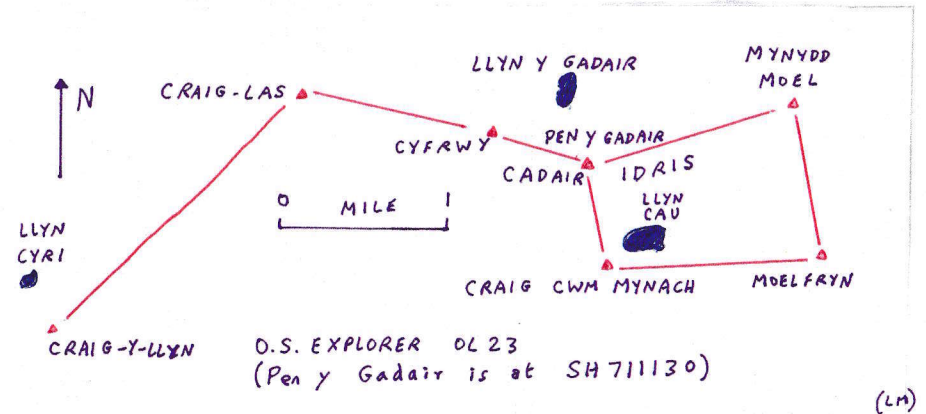 LLYN Y GADAIR
MYNYDD
MOEL
N
CRAIG-LAS
CYFRWY
PEN Y GADAIR
CADAIR IDRIS
0 MILE 1
LLYN
CAU
LLYN
CYRI
CRAIG CWM MYNACH
MOELFRYN
CRAIG-Y-LLYN
O.S. EXPLORER OL 23
(Pen y Gadair is at SH 711130)
(LM)